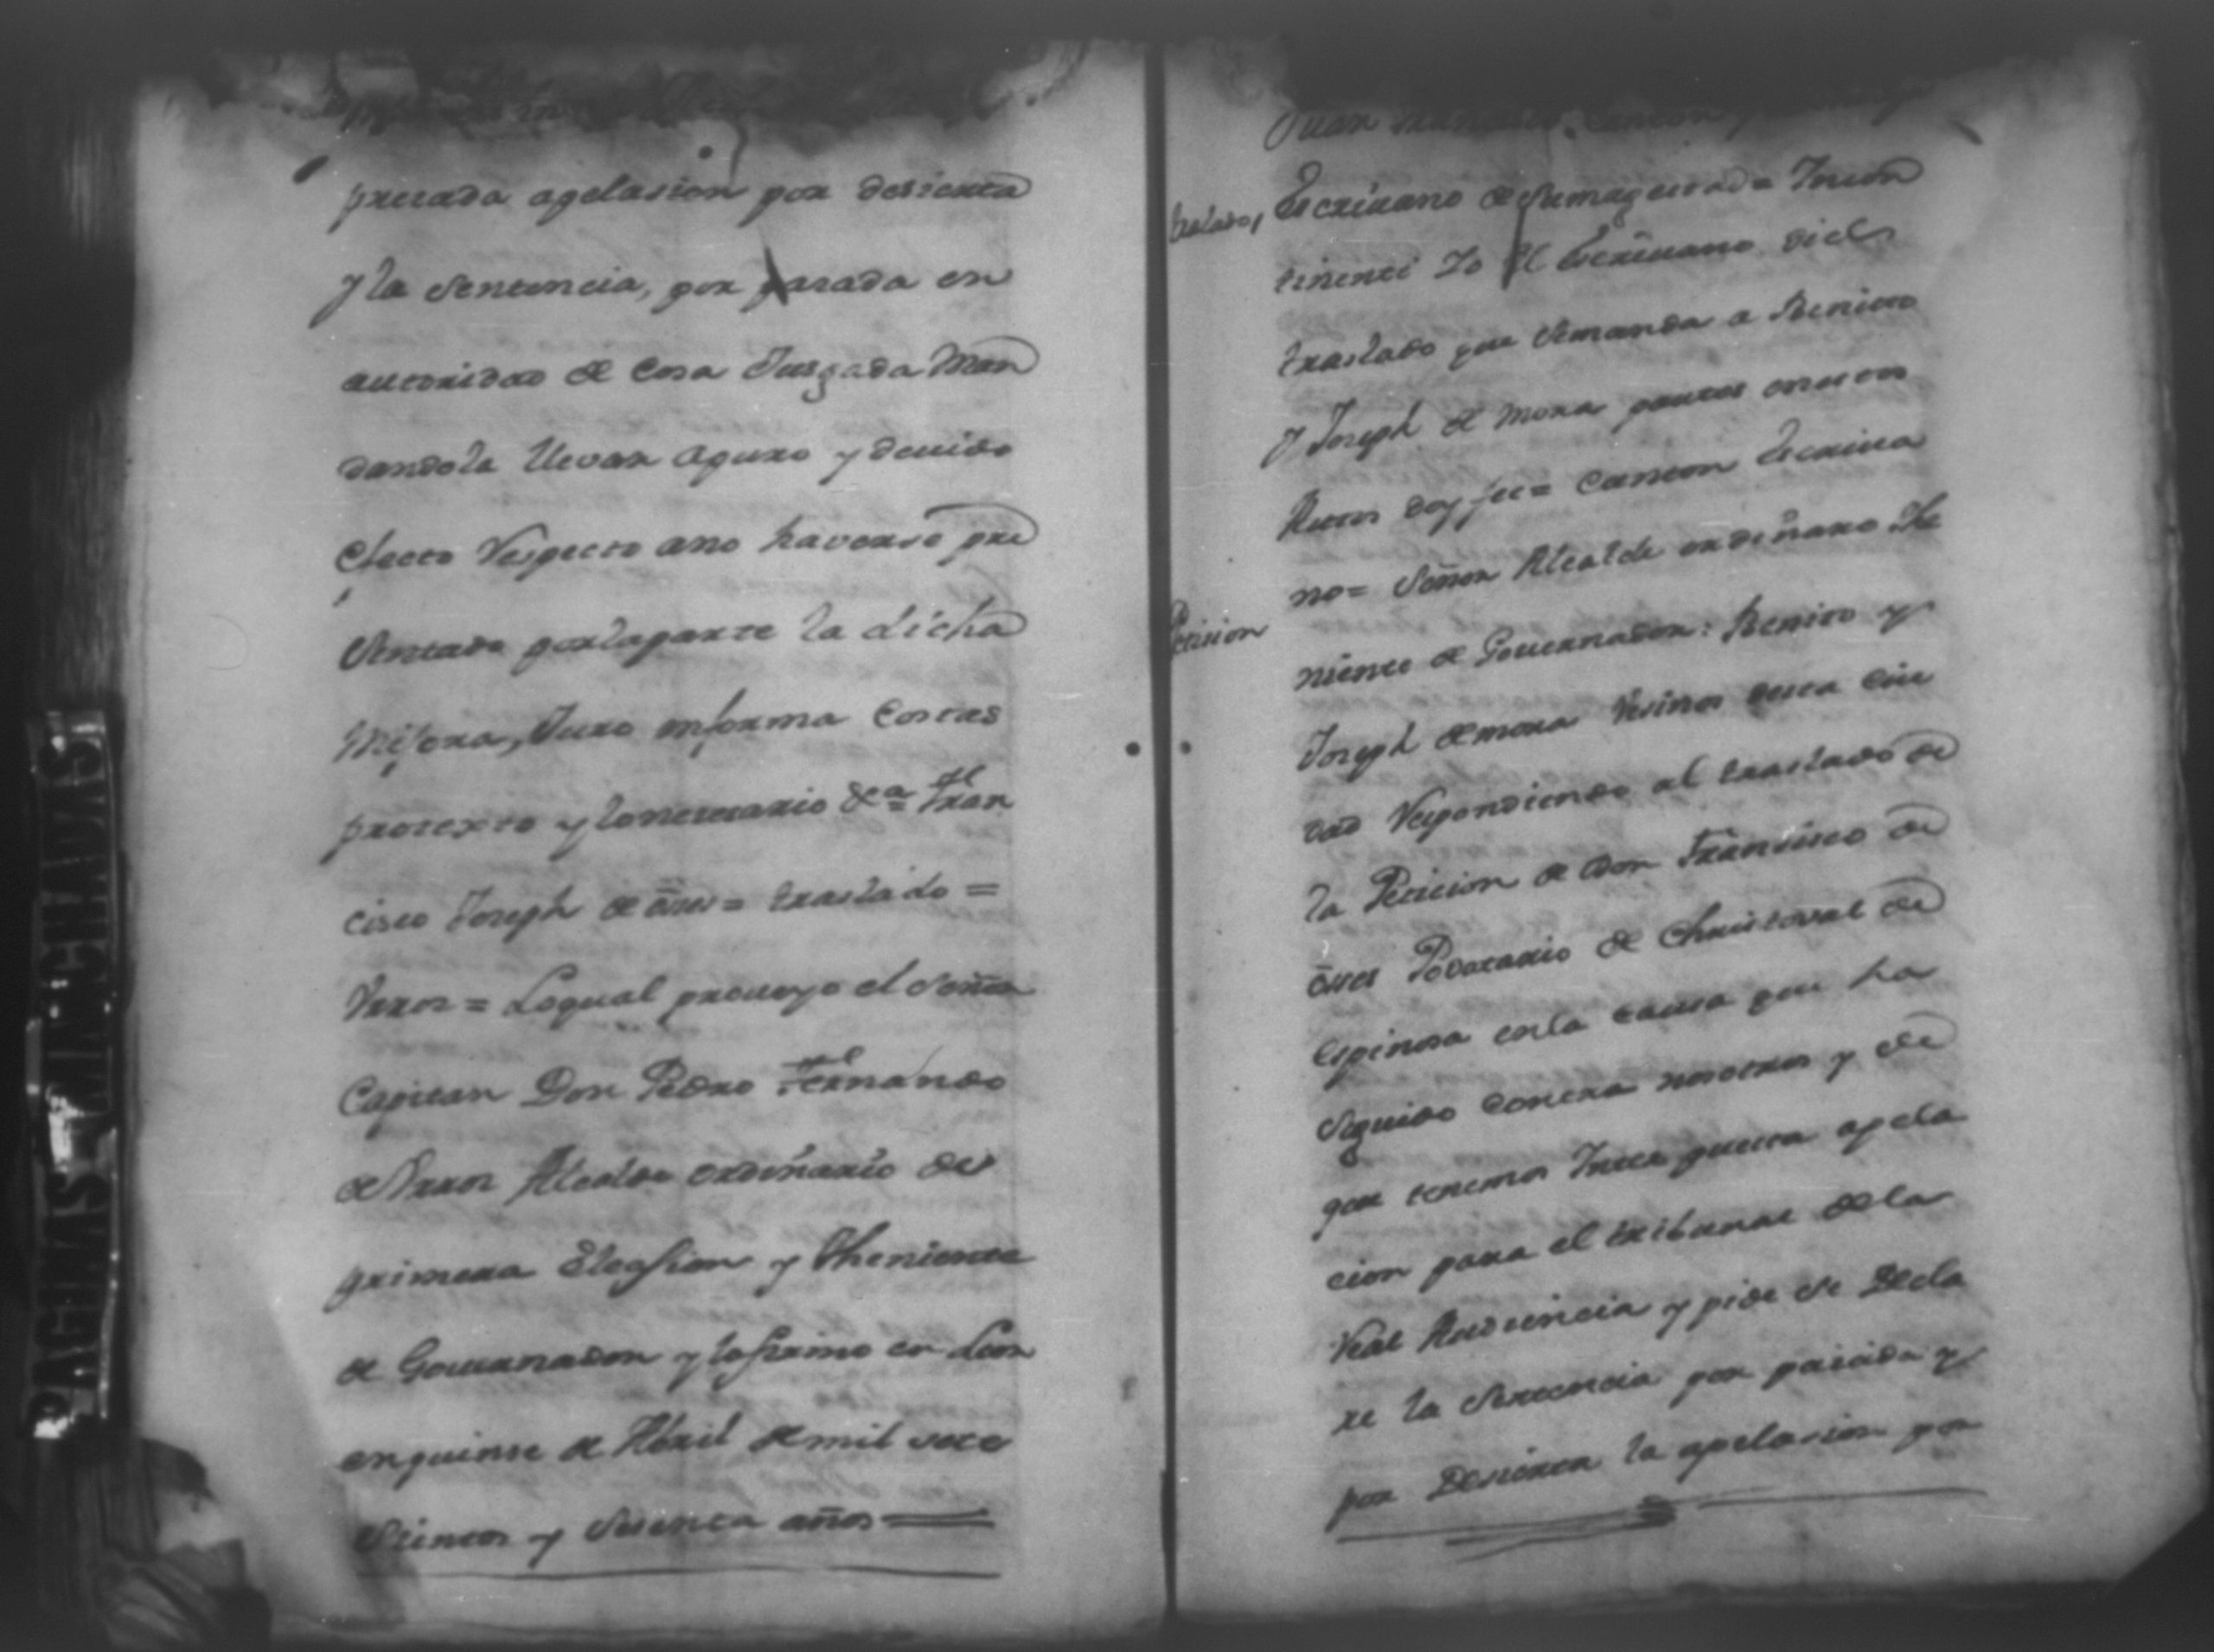 presada apelasion por desierta
y la sentencia, por pasada en
autoridad de Cosa Jusgada Man
dandola llevar apuro y devido
efecto Respecto ano haverse pre
sentado por la parte la dicha
Mejora, Juro en forma Costas
protexto y lo nesesario &ª Fran
cisco Joseph de = traslado =
Arros = Loqual proveyo el Señor
Capitan Don Pedro Fernando
de Arros Alcalde ordinario de
primera Elecsion y Theniente
de Governador y lo firmo en Leon
en quinse de Abril de mil sete
sientos y sesenta años =
Juan
traslado, Escrivano de su magestad = Incon
tinenti Yo el Escrivano di el
traslado que se manda a Benito
y Joseph de Mora partes en estos
Autos doy fee = Canton Escriva
no = Señor Alcalde ordinario The
Petision
niente de Governador: Benito y
Joseph de mora Vesinos desta Ciu
dad Respondiendo al traslado de
la Peticion de Don Fransisco de
Podatario de Christoval de
Espinosa en la causa que ha
seguido contra nosotros y de
que tenemos Interpuesta apela
cion para el tribunal de la
Real Audiencia y pide se Decla
re la Sentencia por pasada y
por Desierta la apelasion por
PAGINAS MANCHADAS